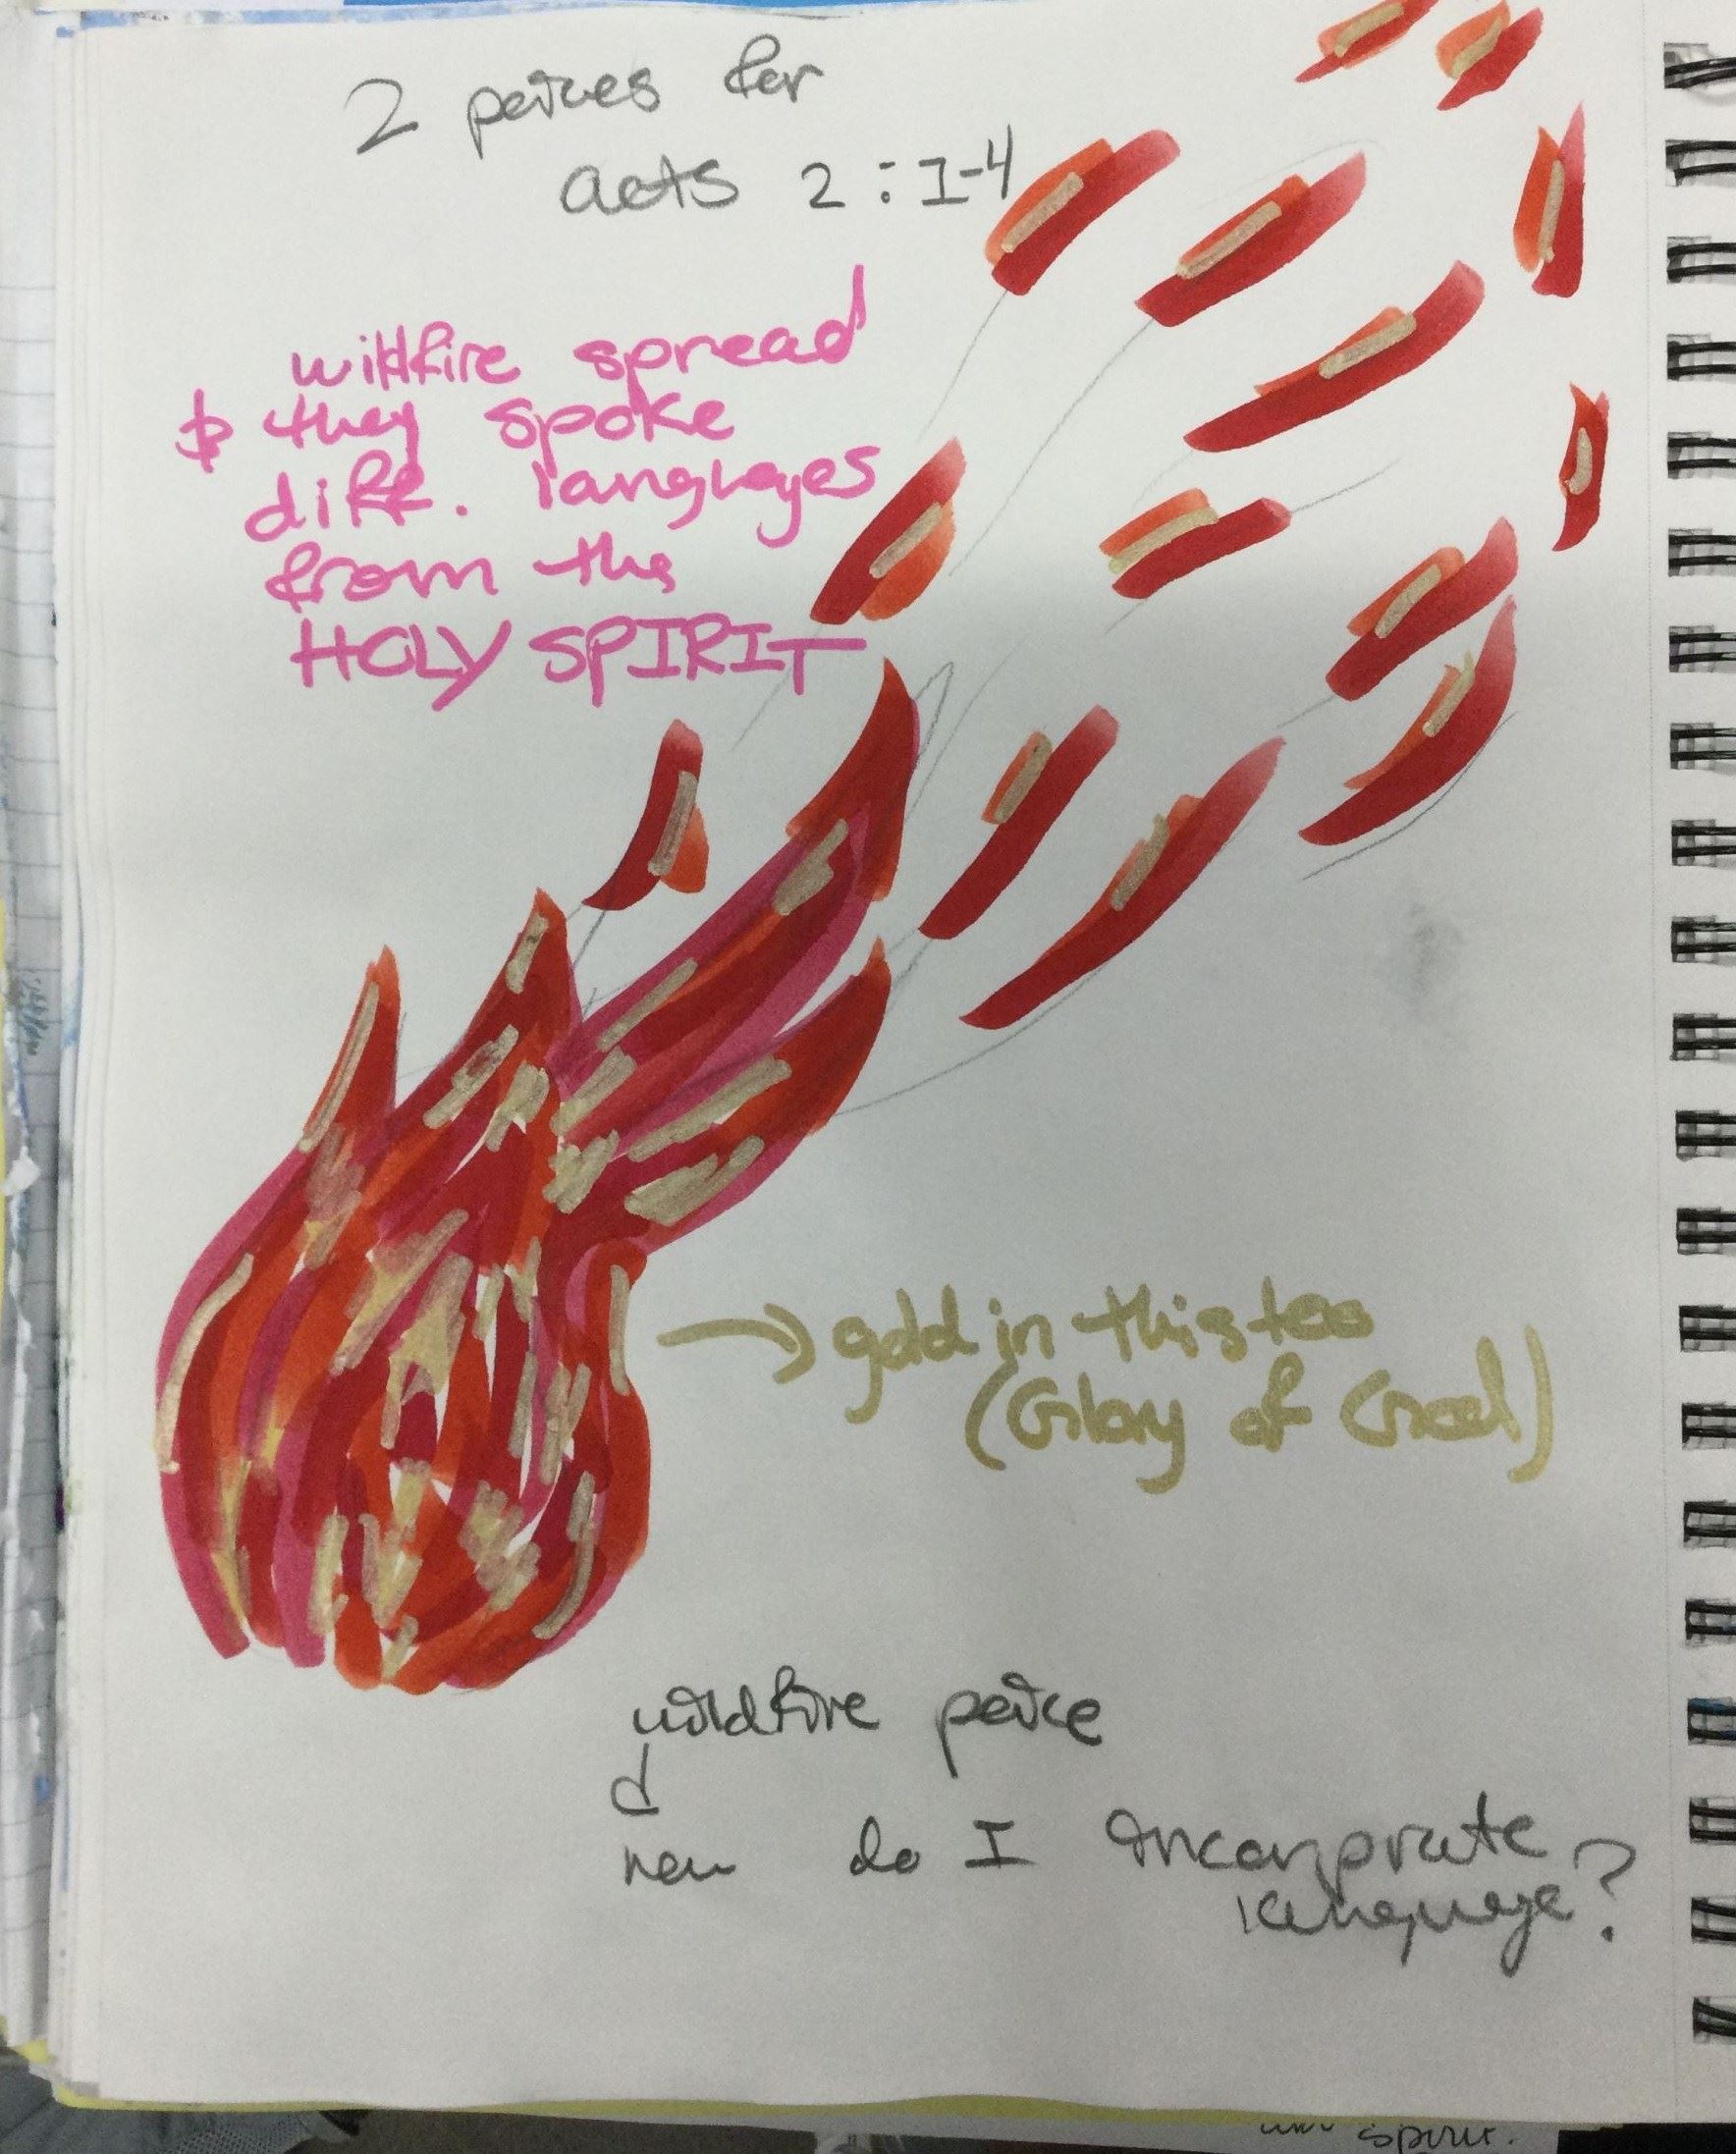 2 peices for
acts 2:1-4
wildfire spread
& they spoke
diff. languages
from the
HOLY SPIRIT
→ gold in this too
(Glory of God)
wildfire peice
↓
how do I incorporate
language?
spirit.